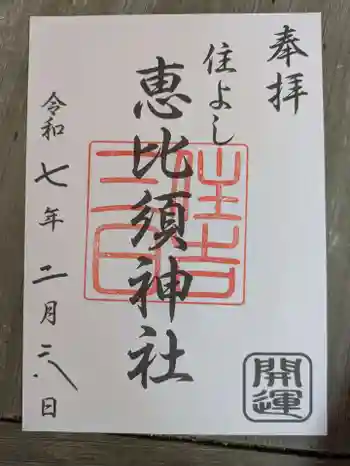 奉拝
住よし
恵比須神社
令和七年二月二八日
開運